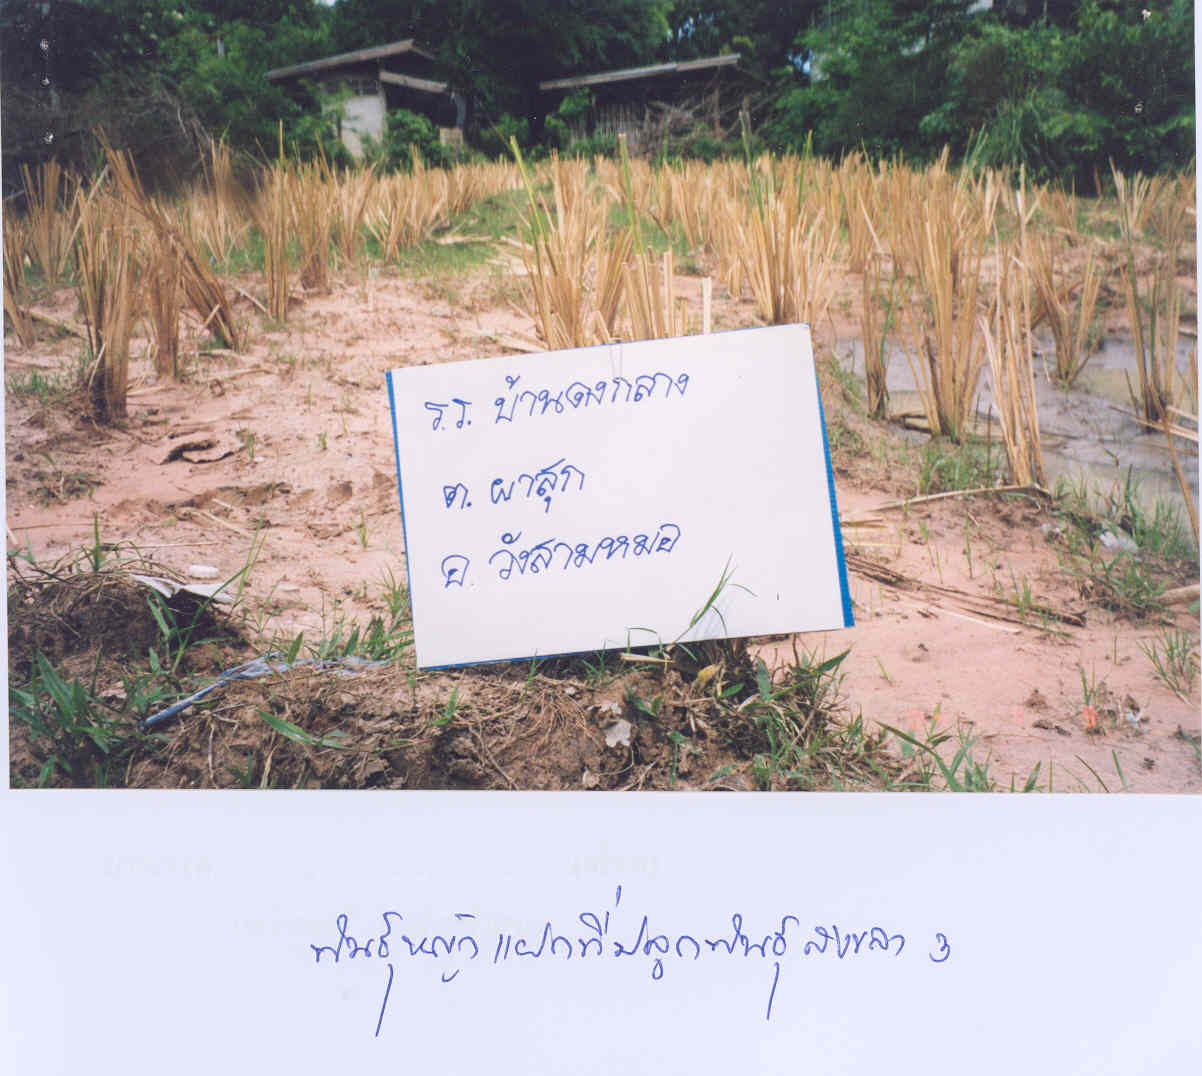 ร.ร. บ้านดงกลาง
ต. ผาสุก
อ. วังสามหมอ
พันธุ์หญ้าแฝกที่ปลูกพันธุ์ สงขลา 3